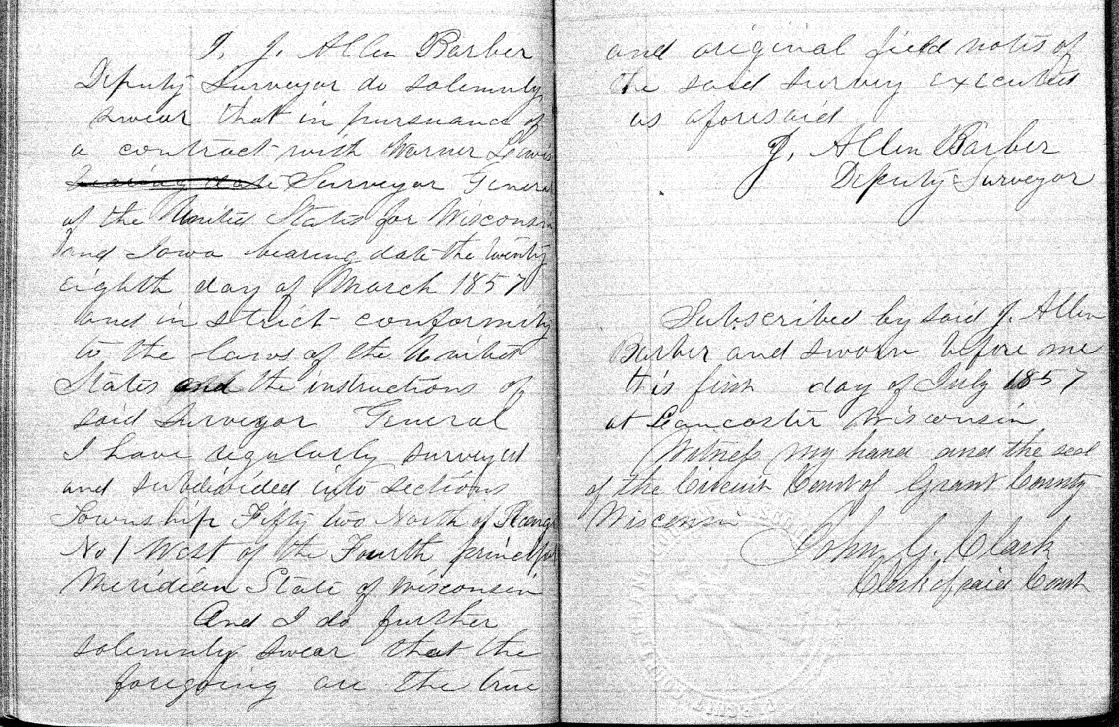 I, J. Allen Barber
Deputy Surveyor do solemnly
swear that in pursuance of
a contract with Warner Lewis
bearing date Surveyor General
of the United States for Wisconsin
and Iowa bearing date the twenty
eighth day of March 1857
and in strict conformity
to the laws of the United
States and the instructions of
said Surveyor General
I have regularly surveyed
and subdivided into sections
Township Fifty two North of Range
No 1 West of the Fourth principal
Meridian State of Wisconsin
And I do further
solemnly swear that the
foregoing are the true
and original field notes of
the said survey executed
as aforesaid
J. Allen Barber
Deputy Surveyor
Subscribed by said J. Allen
Barber and sworn before me
this first day of July 1857
at Lancaster Wisconsin
Witness my hand and the seal
of the Circuit Court of Grant County
Wisconsin
John G. Clark
Clerk of said Court